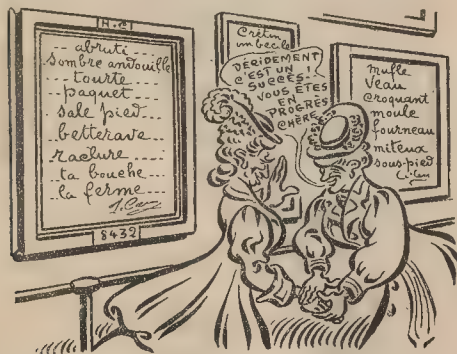 H.C
... abruti ...
sombre andouille
... tourte ...
... paquet ...
sale pied ...
... betterave ...
raclure ...
... ta bouche ...
la ferme ...
8432
Crétin
imbecile
DÉCIDEMENT
C'EST UN
SUCCÈS!
VOUS ETES
EN
PROGRÈS
CHÈRE
mufle
Veau
croquant
moule
fourneau
miteux
sous-pied